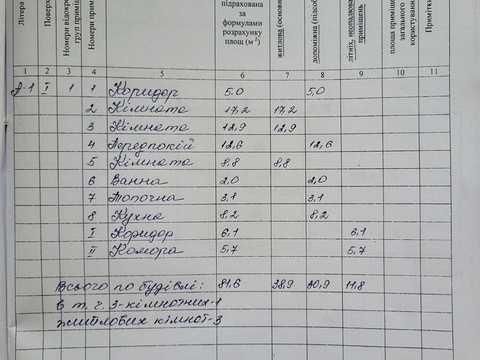 Літера
Поверх
Номери приміщ
підрахована
за
формулами
розрахунку
площ (м²)
житлова (основна
допоміжна (підсоб
приміщень
площа приміщ
загального
користування
Примітки
1 2 3 4 5 6 7 8 9 10 11
А-1 І 1 1 Коридор 5,0 5,0
2 Кімната 17,2 17,2
3 Кімната 12,9 12,9
4 Передпокій 12,6 12,6
5 Кімната 8,8 8,8
6 Ванна 2,0 2,0
7 Топочна 3,1 3,1
8 Кухня 8,2 8,2
І Коридор 6,1 6,1
ІІ Комора 5,7 5,7
Всього по будівлі: 81,6 38,9 30,9 11,8
в т. ч. 3-кімнатних-1
житлових кімнат-3